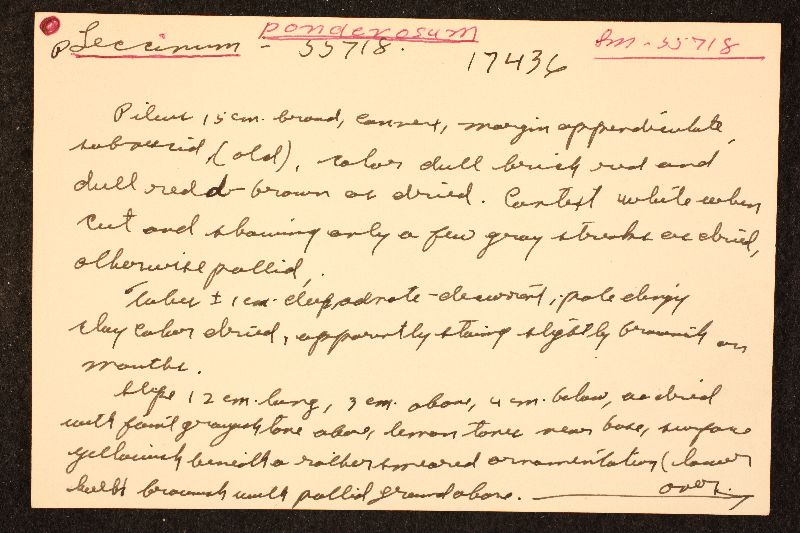 ponderosum
Leccinum - 55718. 17436 Sm - 55718
Pileus 15 cm. broad, convex, margin appendiculate,
subviscid, (old), color dull brick red and
dull redd-brown as dried. Context white when
cut and showing only a few gray streaks as dried,
otherwise pallid,
Tubes ± 1 cm. deep, adnate-decurrent, pale dingy
clay color dried, apparently staing slightly brownish on
mouths.
Stipe 12 cm. long, 3 cm. above, 4 cm. below, as dried
with faint grayish tone above, lemon tones near base, surface
yellowish beneath a rather smeared ornamentation (lower
half brownish with pallid ground above.
over.